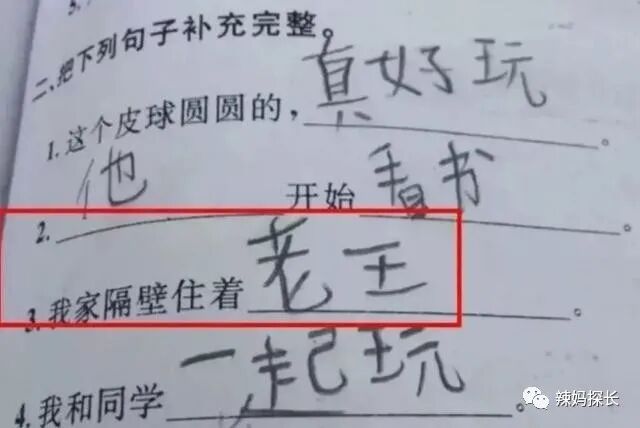 二、把下列句子补充完整。
1.这个皮球圆圆的,真好玩。
2.他开始看书。
3.我家隔壁住着老王。
4.我和同学一起玩。
辣妈探长